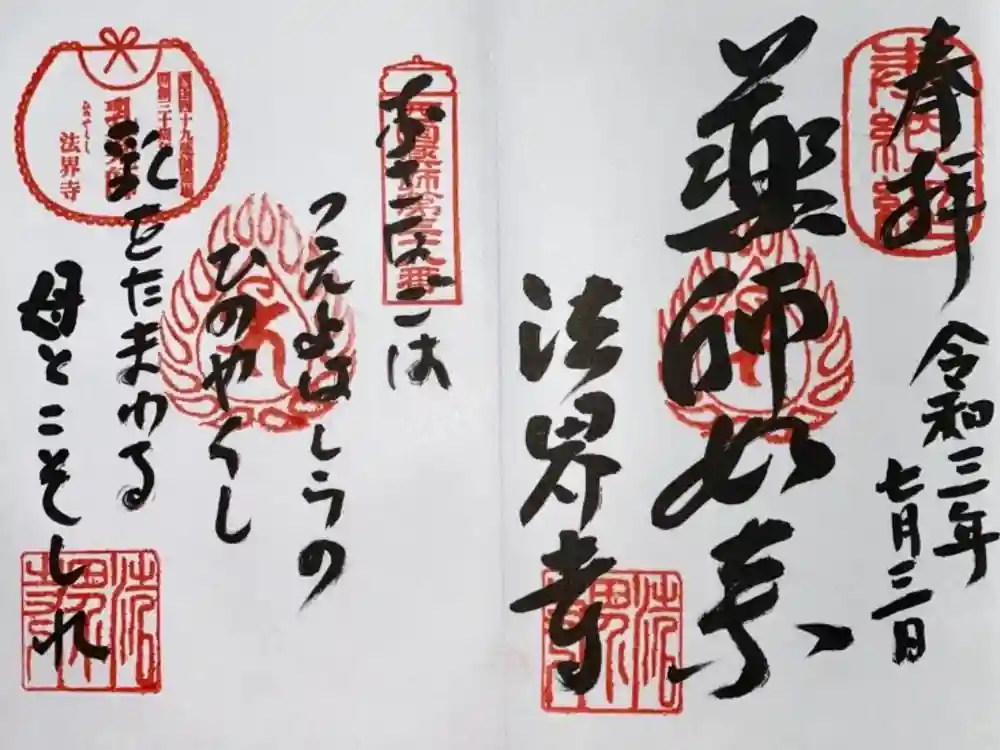 奉拝
令和三年
七月三日
薬師如来
法界寺
つえよはしらの
ひのやくし
乳をたまわる
母とこそしれ
西国四十九薬師霊場
法界寺
法界寺
法界寺